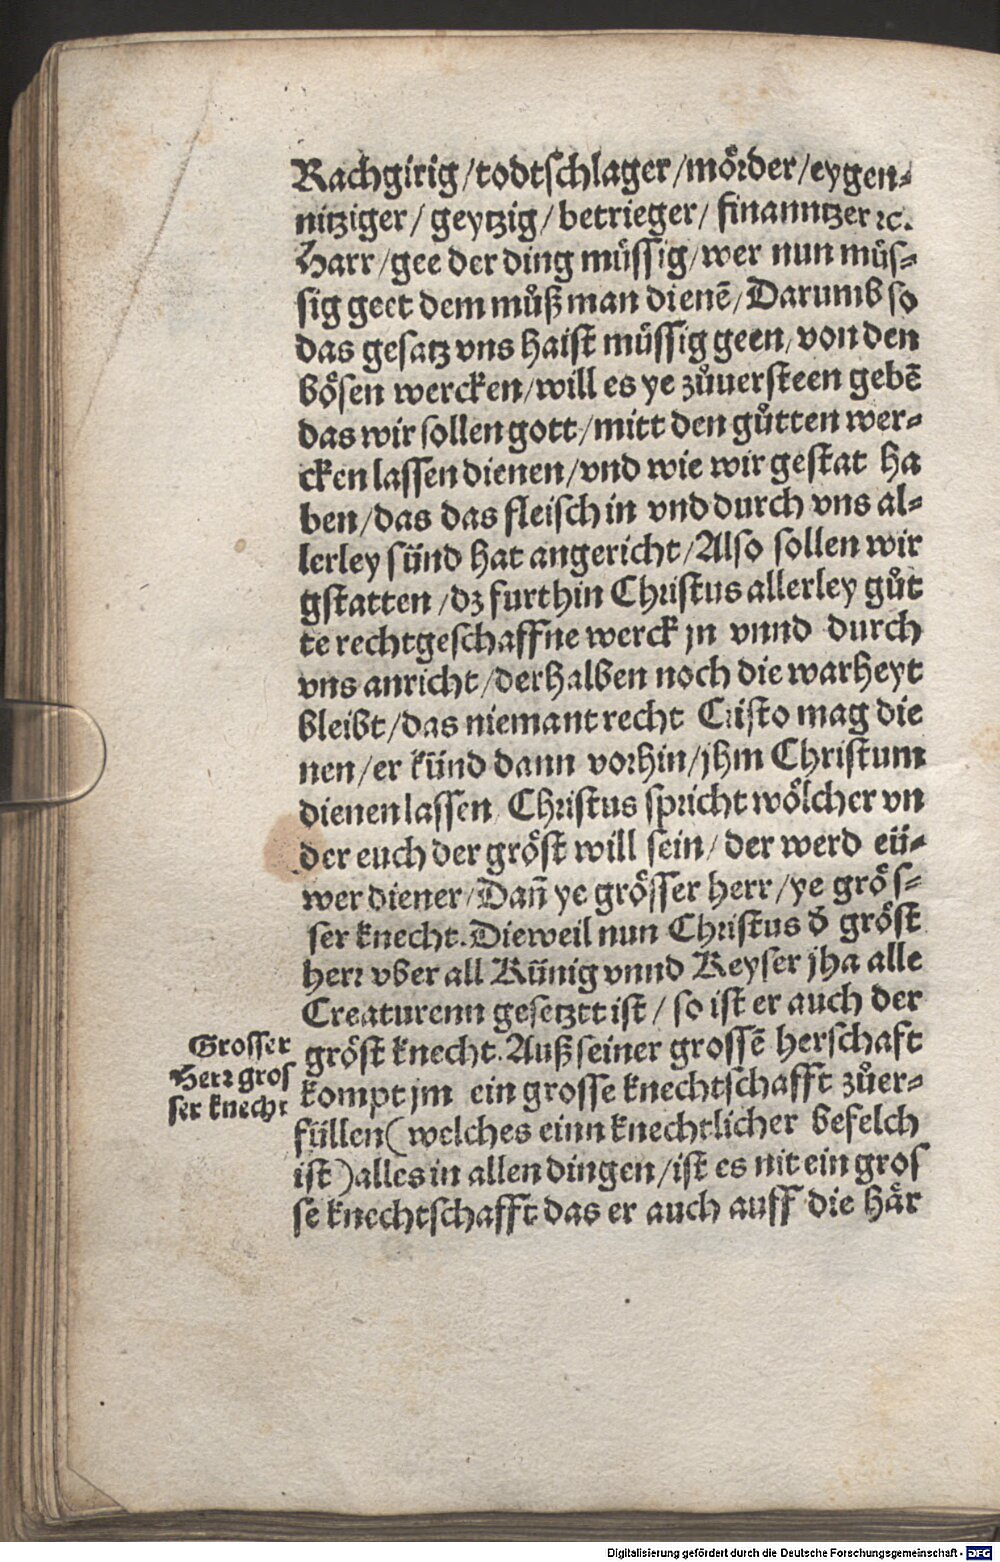 Rachgirig/todtschlager/mörder/eygen-
nitziger/geytzig/betrieger/finanntzer ꝛc.
Harr/gee der ding müssig/wer nun müs-
sig geet dem můß man dienē/Darumb so
das gesatz vns haist müssig geen/von den
bösen wercken/will es ye zůuersteen gebē
das wir sollen gott/mitt den gůtten wer-
cken lassen dienen/vnd wie wir gestat ha
ben/das das fleisch in vnd durch vns al-
lerley sünd hat angericht/Also sollen wir
gstatten/dz furthin Christus allerley gůt
te rechtgeschaffne werck jn vnnd durch
vns anricht/derhalben noch die warheyt
bleibt/das niemant recht Cristo mag die
nen/er künd dann vorhin/jhm Christum
dienen lassen/Christus spricht wölcher vn
der euch der gröst will sein/der werd eü-
wer diener/Dañ ye grösser herr/ye grös-
ser knecht.Dieweil nun Christus d̄ gröst
herr vber all Künig vnnd Keyser jha alle
Creaturenn gesetztt ist/so ist er auch der
gröst knecht.Auß seiner grossē herschaft
kompt jm ein grosse knechtschafft zůer-
füllen(welches einn knechtlicher befelch
ist)alles in allen dingen/ist es nit ein gros
se knechtschafft das er auch auff die här
Grosser
Herr gros
ser knecht
Digitalisierung gefördert durch die Deutsche Forschungsgemeinschaft - DFG